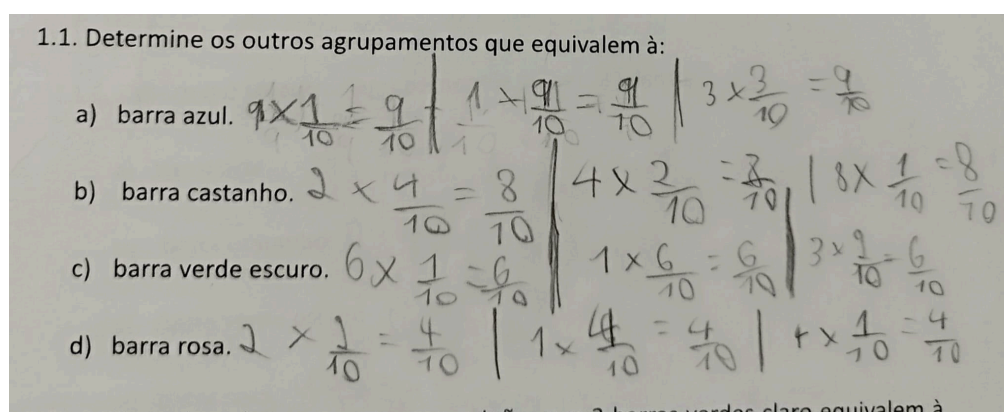 1.1. Determine os outros agrupamentos que equivalem à:
a) barra azul. 9 × 1/10 = 9/10 | 1 × 9/10 = 9/10 | 3 × 3/10 = 9/10
b) barra castanho. 2 × 4/10 = 8/10 | 4 × 2/10 = 8/10 | 8 × 1/10 = 8/10
c) barra verde escuro. 6 × 1/10 = 6/10 | 1 × 6/10 = 6/10 | 3 × 2/10 = 6/10
d) barra rosa. 2 × 2/10 = 4/10 | 1 × 4/10 = 4/10 | 4 × 1/10 = 4/10
claro equivalem à